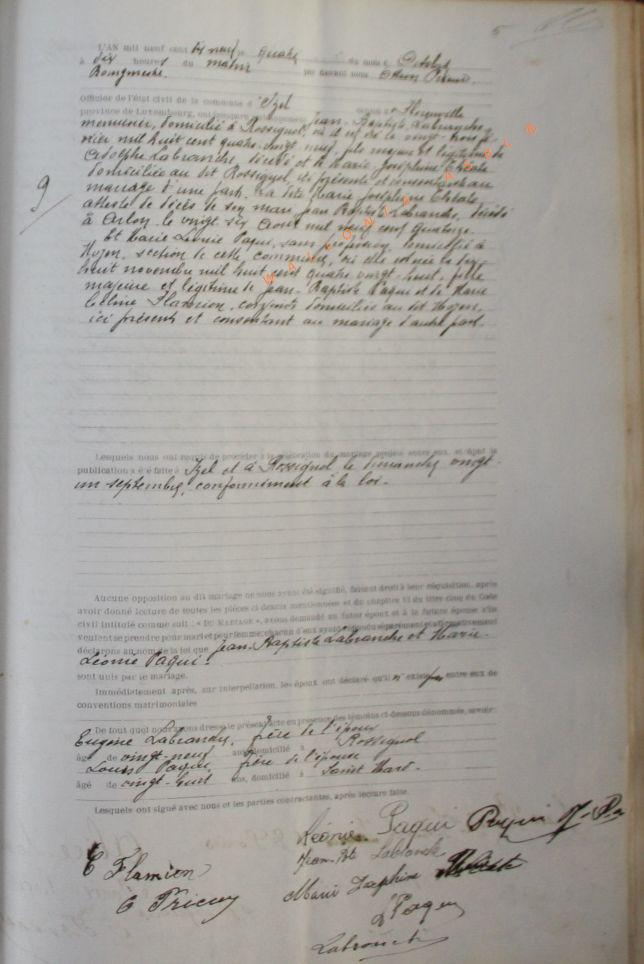 5
L'AN mil neuf cent dix neuf, le quatre du mois d'Octobre
à dix heures du matin par devant nous
Bourgmestre,
Officier de l'état civil de la commune d'Izel canton de Florenville
province de Luxembourg, ont comparu Jean-Baptiste Labranche
menuisier, domicilié à Rossignol, où il est né le vingt-trois
mil huit cent quatre-vingt neuf, fils majeur et légitime de
Adolphe Labranche, décédé et de Marie Joséphine
domiciliée au dit Rossignol, ici présente et consentant au
mariage d'une part. La dite Marie Joséphine
atteste le décès de son mari Jean Baptiste Labranche, décédé
à Arlon le vingt six Août mil neuf cent quatorze.
9
Et Marie Léonie Paqui, sans profession, domiciliée à
Moyen, section de cette commune, où elle est née le dix
huit novembre mil huit cent quatre vingt-huit, fille
majeure et légitime de Jean-Baptiste Paqui et de Marie
Céline Flamion, conjoints domiciliés au dit Moyen,
ici présents et consentant au mariage d'autre part.
Lesquels nous ont requis de procéder à la célébration du mariage projeté entre eux, et dont la
publication a été faite à Izel et à Rossignol le dimanche vingt-
un septembre, conformément à la loi.
Aucune opposition au dit mariage ne nous ayant été signifié, faisant droit à leur réquisition, après
avoir donné lecture de toutes les pièces ci dessus mentionnées et du chapitre VI du titre cinq du Code
civil intitulé comme suit : « DU MARIAGE », avons demandé au futur époux et à la future épouse s'ils
veulent se prendre pour mari et pour femme; chacun d'eux ayant répondu séparément et affirmativement
déclarons au nom de la loi que Jean-Baptiste Labranche et Marie-
Léonie Paqui.
sont unis par le mariage.
Immédiatement après, sur interpellation, les époux ont déclaré qu'il n'existe pas entre eux de
conventions matrimoniales
De tout quoi nous avons dressé le présent acte en présence des témoins ci-dessous dénommés, savoir:
Eugène Labranche, frère de l'époux
âgé de vingt-neuf ans, domicilié à Rossignol
Louis Paqui, frère de l'épouse
âgé de vingt-huit ans, domicilié à Saint Mard.
Lesquels ont signé avec nous et les parties contractantes, après lecture faite.
Léonie Paqui
E Flamion
Jean-Bte Labranche
Marie Joséphine
L Paqui
Labranche